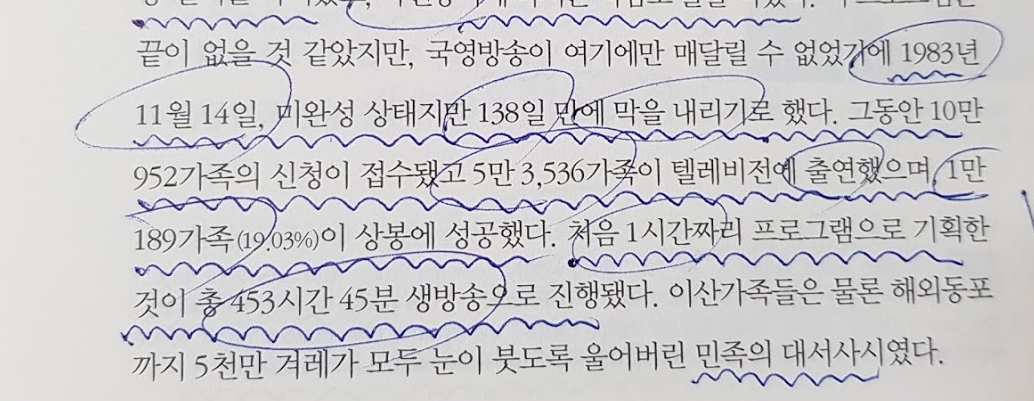 끝이 없을 것 같았지만, 국영방송이 여기에만 매달릴 수 없었기에 1983년
11월 14일, 미완성 상태지만 138일 만에 막을 내리기로 했다. 그동안 10만
952가족의 신청이 접수됐고 5만 3,536가족이 텔레비전에 출연했으며, 1만
189가족(19.03%)이 상봉에 성공했다. 처음 1시간짜리 프로그램으로 기획한
것이 총 453시간 45분 생방송으로 진행됐다. 이산가족들은 물론 해외동포
까지 5천만 겨레가 모두 눈이 붓도록 울어버린 민족의 대서사시였다.